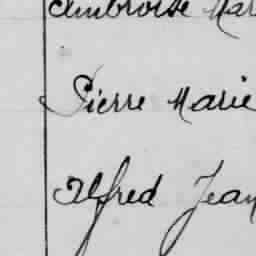 Ambroise Mar
Pierre Marie
Alfred Jean